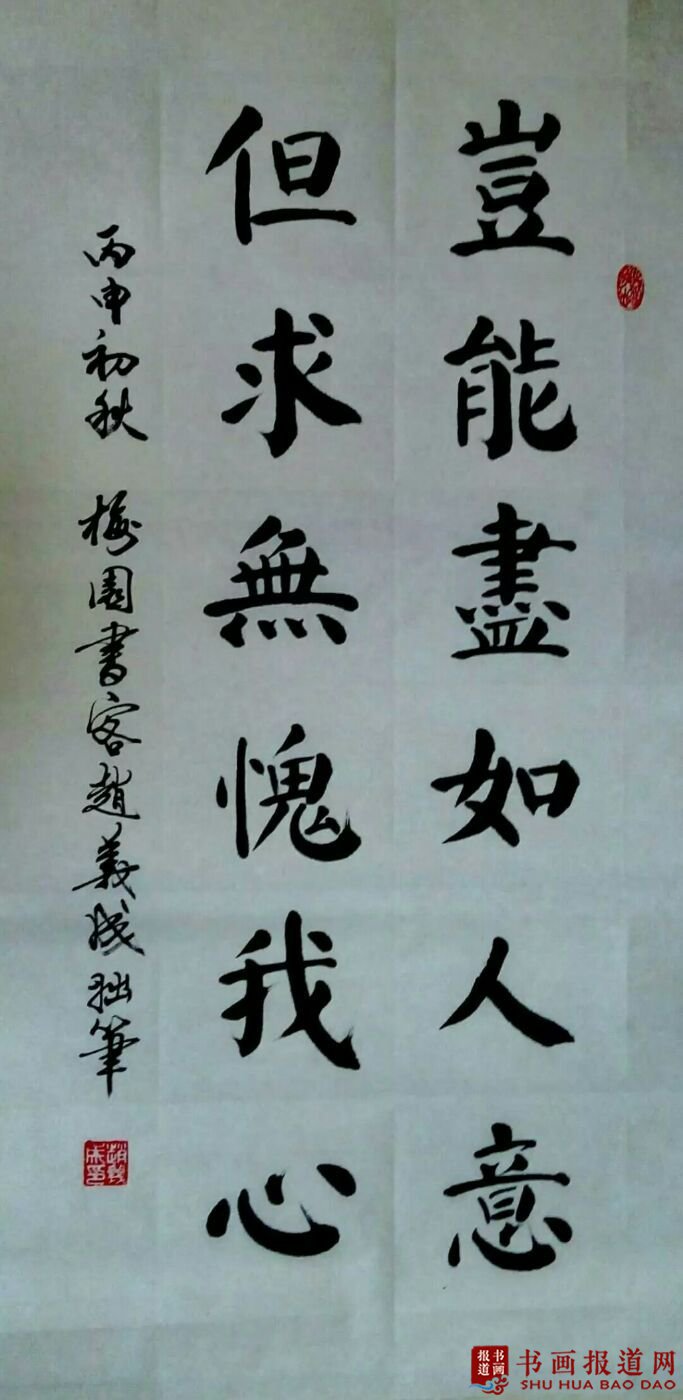 豈能盡如人意
但求無愧我心
丙申初秋 梅園書客趙義成拙筆
书画报道
书画报道网
SHU HUA BAO DAO